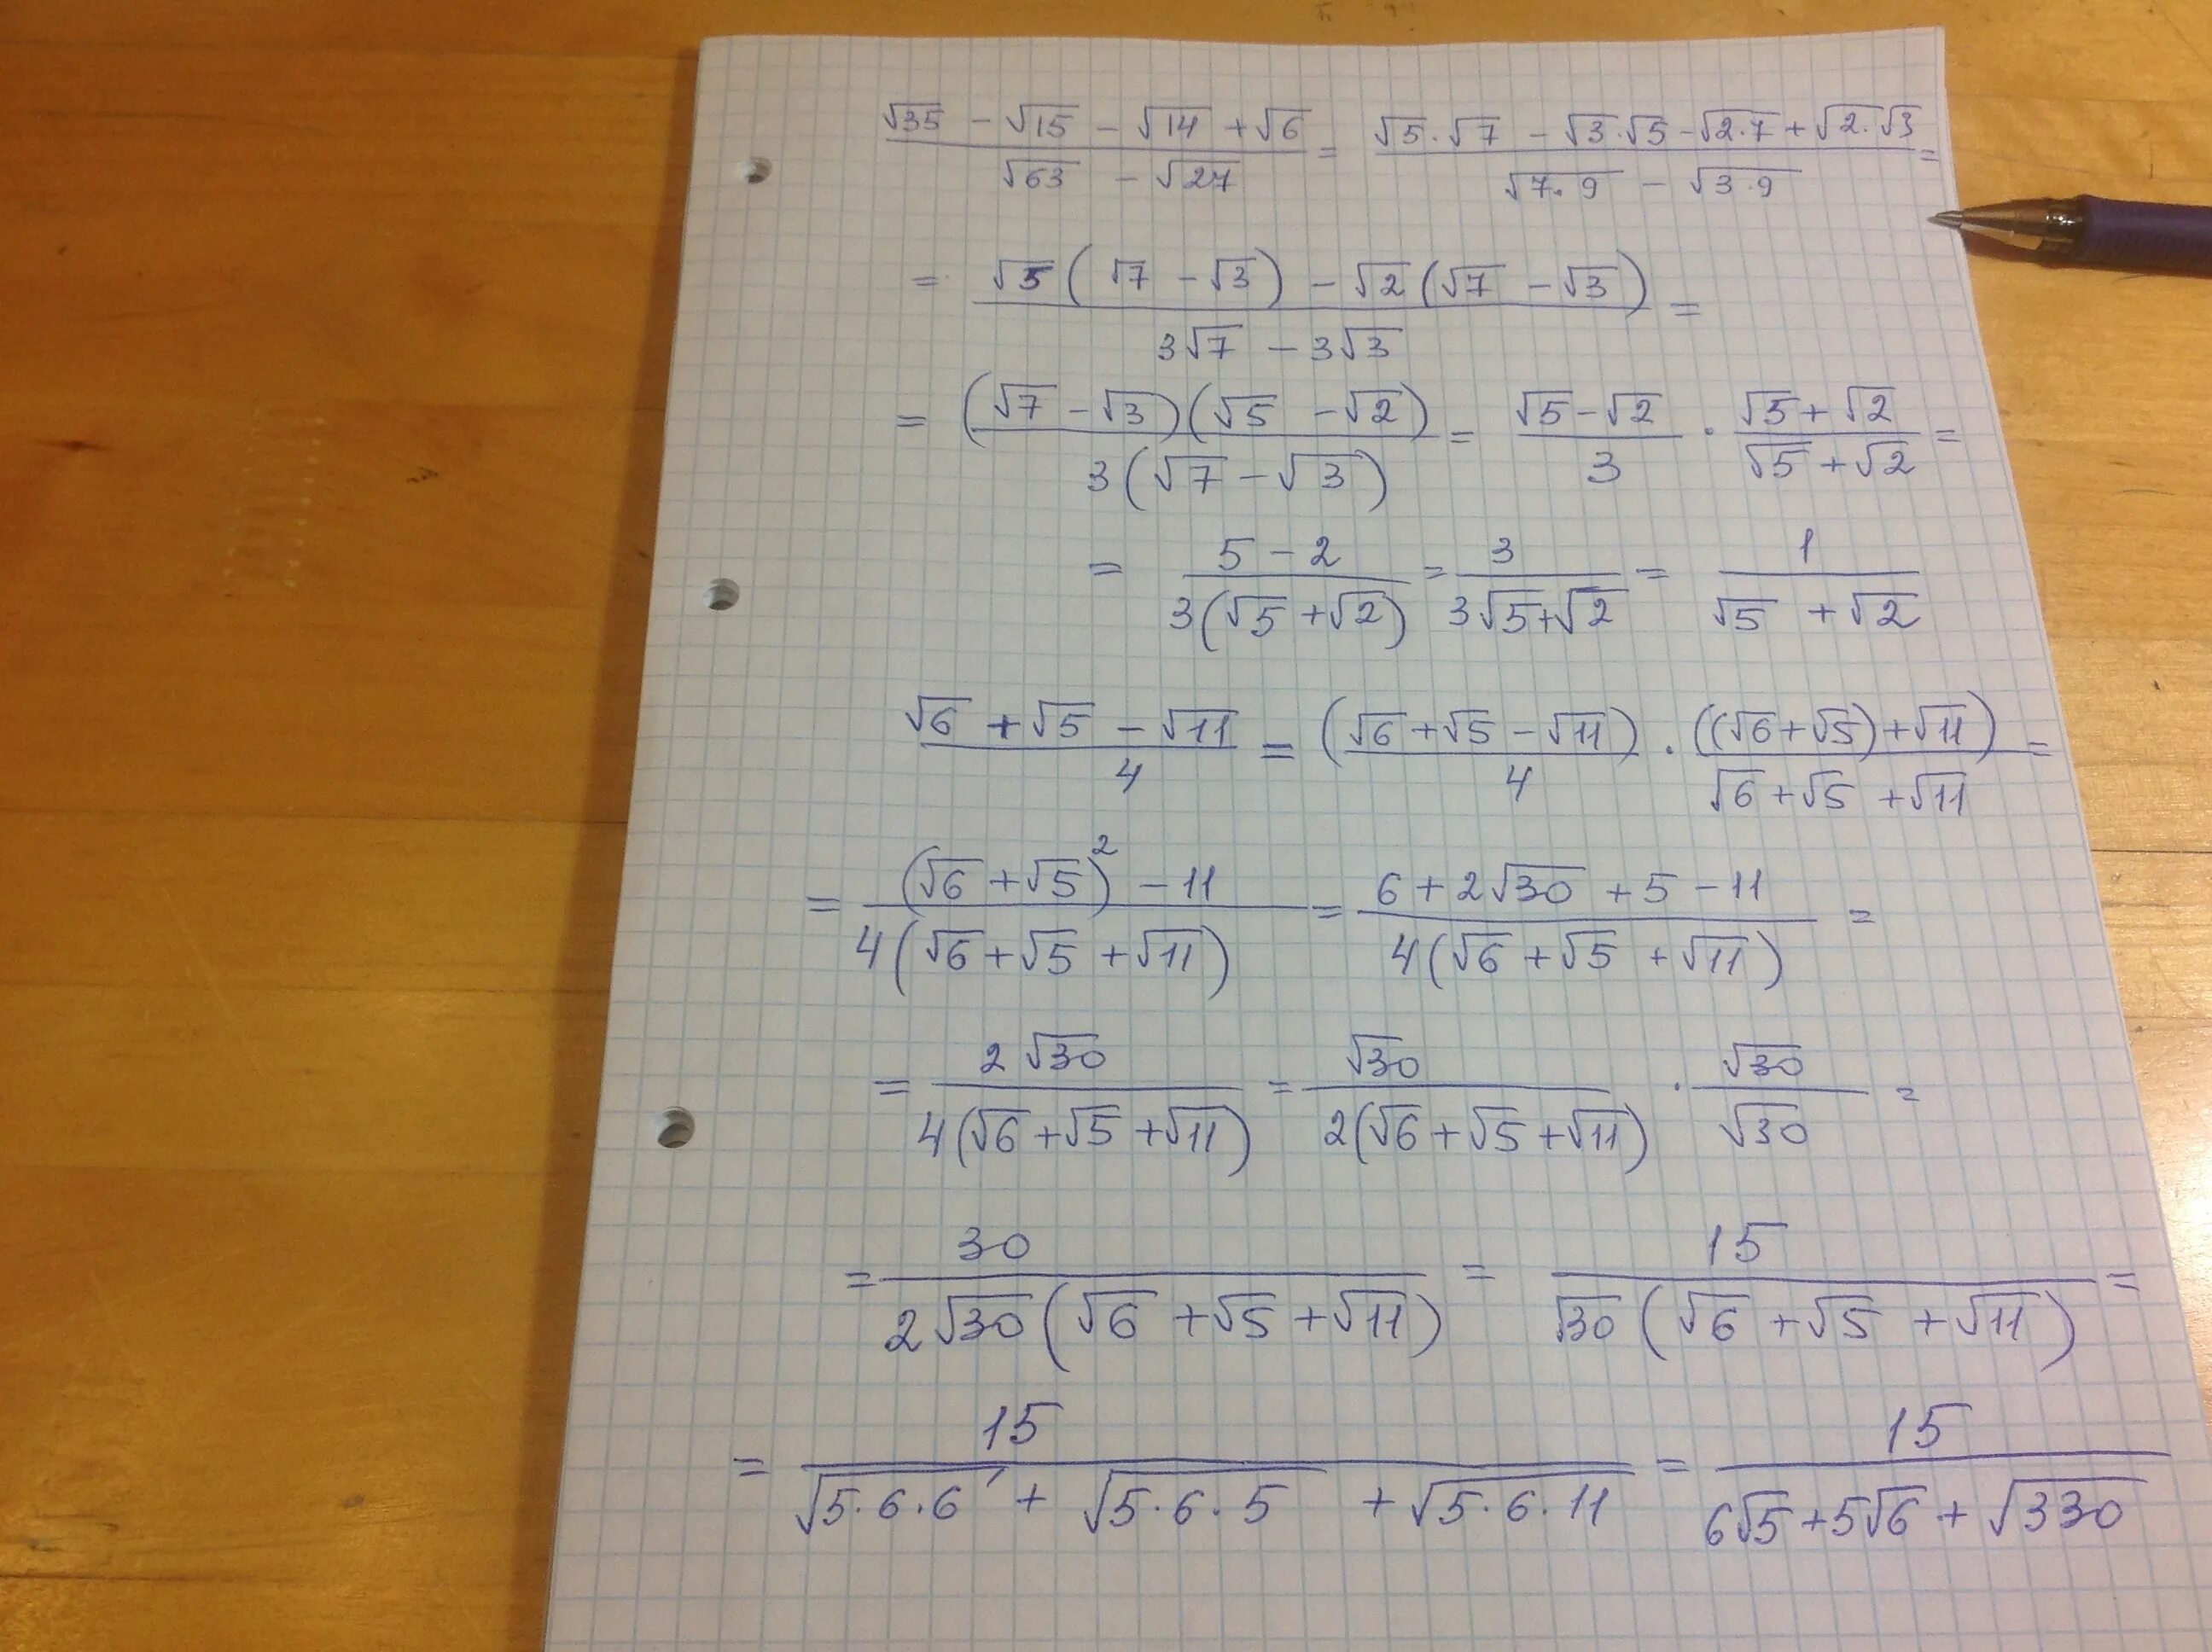 (√35 - √15 - √14 + √6)/(√63 - √27) = (√5·√7 - √3·√5 - √2·7 + √2·√3)/(√7·9 - √3·9) =
= (√5(√7 - √3) - √2(√7 - √3))/(3√7 - 3√3) =
= ((√7 - √3)(√5 - √2))/(3(√7 - √3)) = (√5 - √2)/3 · (√5 + √2)/(√5 + √2) =
= (5 - 2)/(3(√5 + √2)) = 3/(3√5 + √2) = 1/(√5 + √2)
(√6 + √5 - √11)/4 = (√6 + √5 - √11)/4 · ((√6 + √5) + √11)/(√6 + √5 + √11) =
= ((√6 + √5)² - 11)/(4(√6 + √5 + √11)) = (6 + 2√30 + 5 - 11)/(4(√6 + √5 + √11)) =
= 2√30/(4(√6 + √5 + √11)) = √30/(2(√6 + √5 + √11)) · √30/√30 =
= 30/(2√30(√6 + √5 + √11)) = 15/(√30(√6 + √5 + √11)) =
= 15/(√5·6·6 + √5·6·5 + √5·6·11) = 15/(6√5 + 5√6 + √330)